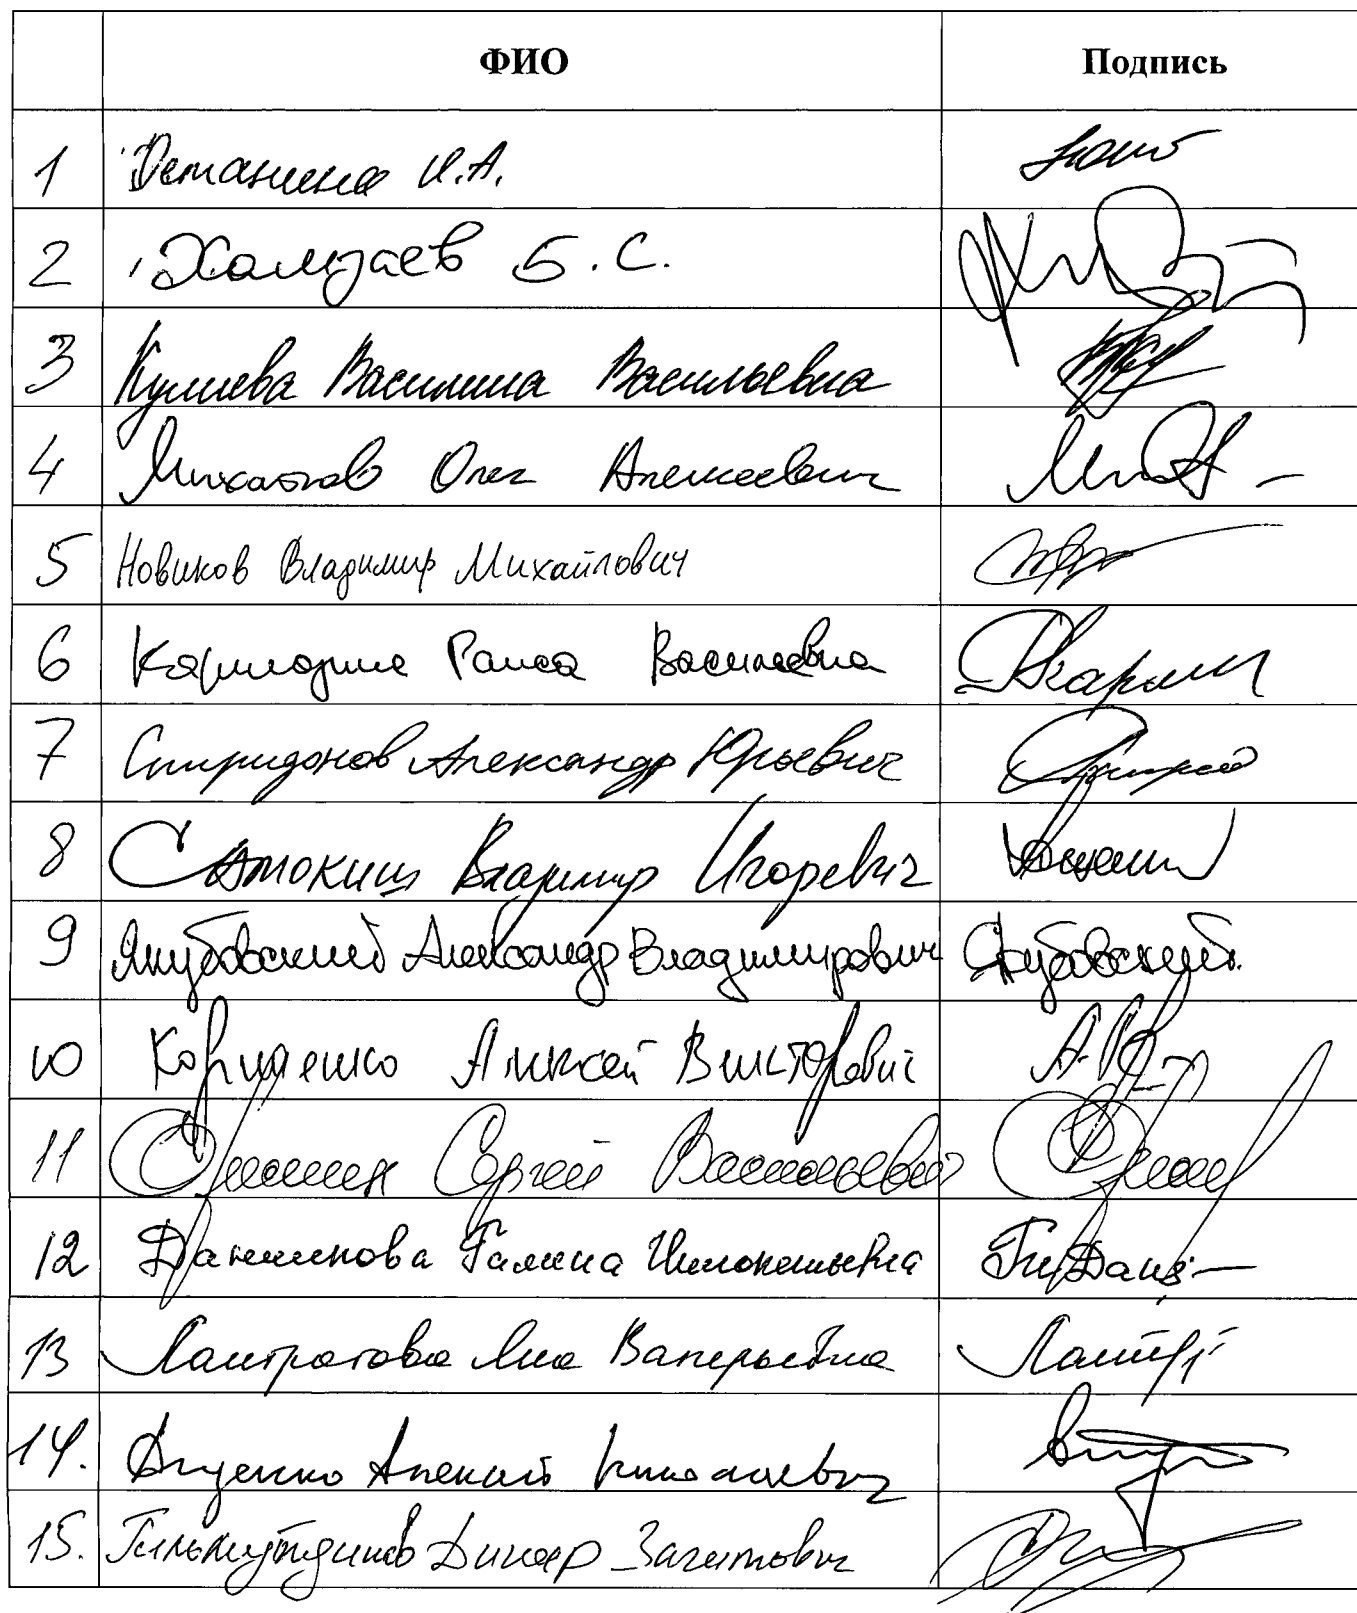 ФИО Подпись
1 Останина Н.А.
2 Хамзаев Б.С.
3 Кулиева Василина Васильевна
4 Михайлов Олег Алексеевич
5 Новиков Владимир Михайлович
6 Кармазина Раиса Васильевна
7 Спиридонов Александр Юрьевич
8 Самокиш Владимир Игоревич
9 Якубовский Александр Владимирович Якубовский
10 Корниенко Алексей Викторович
11 Сергей Васильевич
12 Данчикова Галина Иннокентьевна
13 Лантратова Яна Валерьевна
14. Диденко Алексей Николаевич
15. Гильмутдинов Динар Загитович